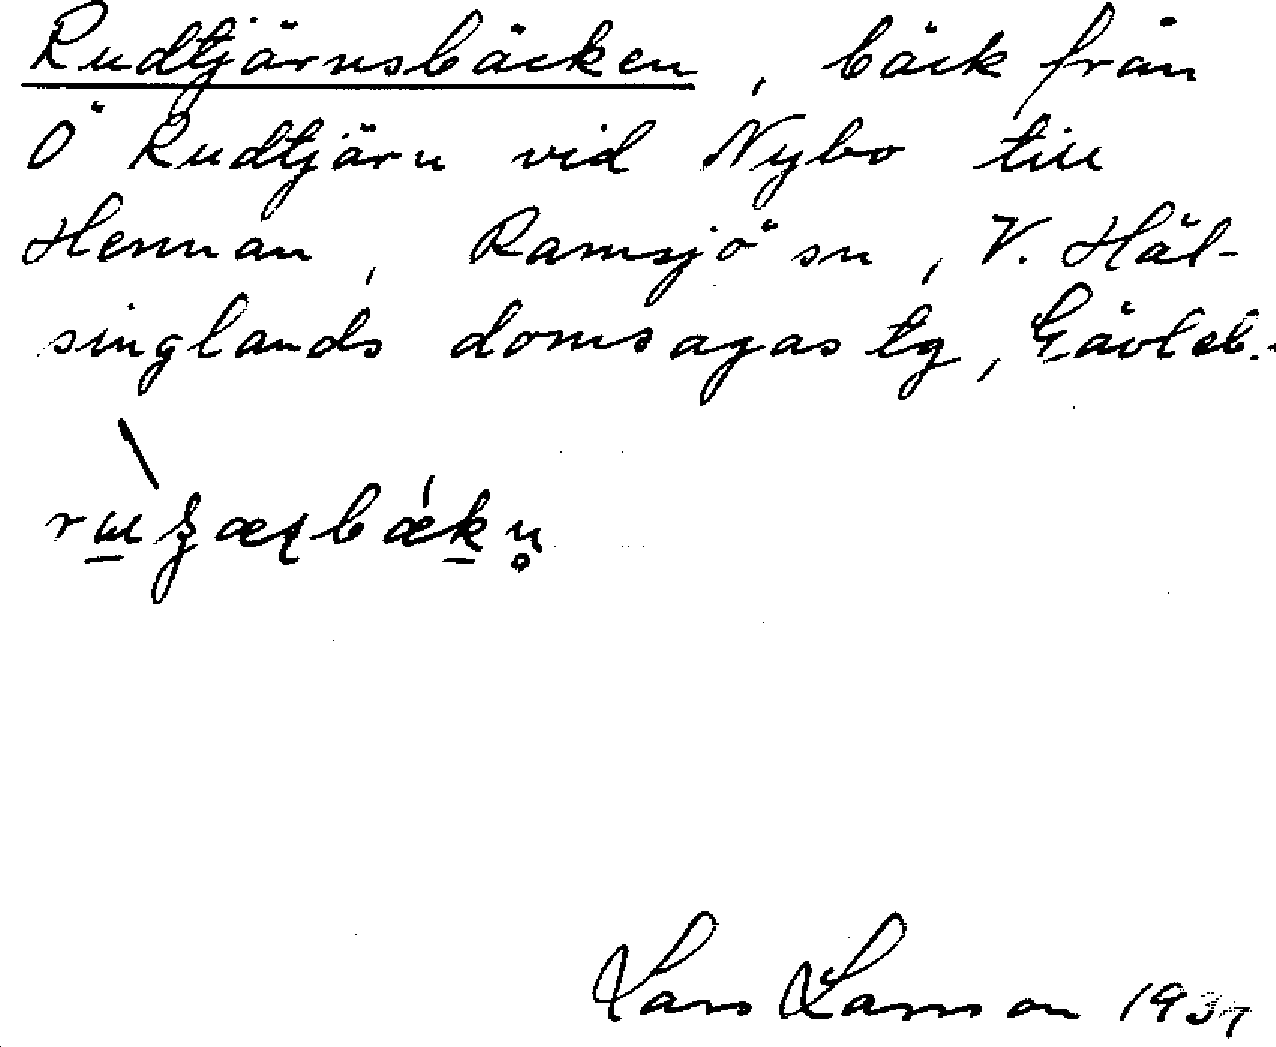 Rudtjärnsbäcken, bäck från
Ö Rudtjärn vid Nybo till
Hennan, Ramsjö sn, V. Häl-
singlands domsagas tg, Gävleb.
Lars Larsson 1937